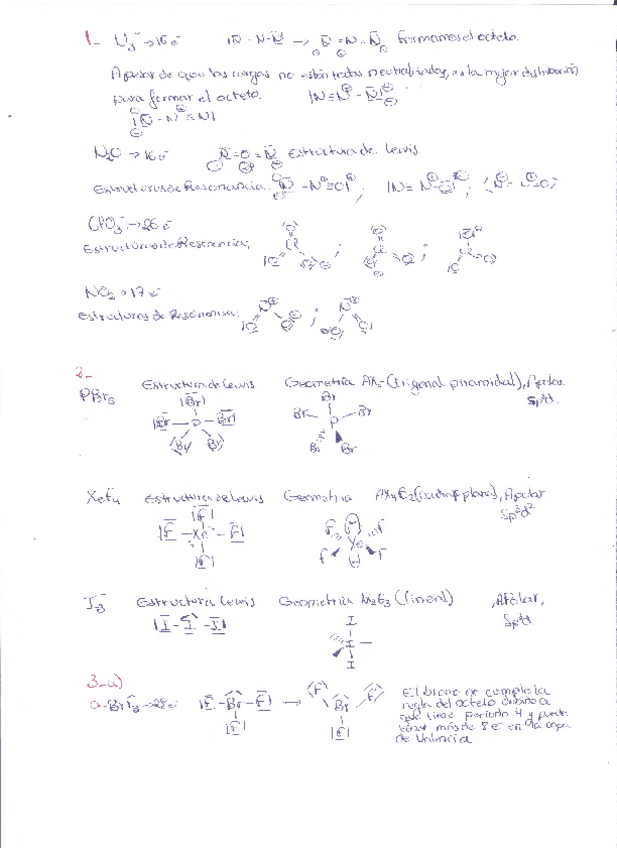 1- N₃⁻ → 16 e⁻ Formamos el octeto.
A pesar de que las cargas no están todas neutralizadas, es la mejor distribución
para formar el octeto.
N₂O → 16 e⁻ Estructura de Lewis
Estructuras de Resonancia:
ClO₃⁻ → 26 e⁻
Estructuras de Resonancia:
NO₂ → 17 e⁻
Estructuras de Resonancia:
2-
PBr₅ Estructura de Lewis Geometría (trigonal piramidal), Apolar
sp³d
XeF₄ Estructura de Lewis Geometría AX₄E₂ (cuadrada plana), Apolar
sp³d²
I₃⁻ Estructura Lewis Geometría (lineal), Apolar,
sp³d
3-a)
a- BrF₃ → 28 e⁻ El bromo no cumple la
regla del octeto debido a
que tiene periodo 4 y puede
tener más de 8 e⁻ en la capa
de Valencia